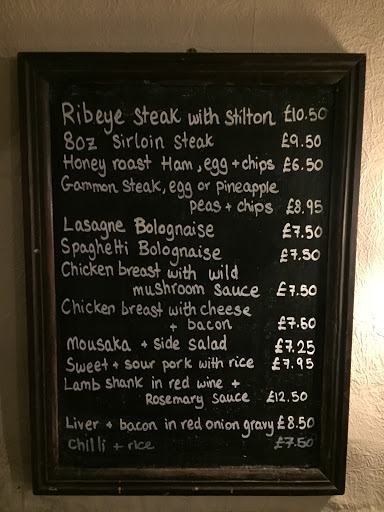 Ribeye steak with stilton £10.50
8oz sirloin steak £9.50
Honey roast Ham, egg + chips £6.50
Gammon steak, egg or pineapple
peas + chips £8.95
Lasagne Bolognaise £7.50
Spaghetti Bolognaise £7.50
Chicken breast with wild
mushroom sauce £7.50
Chicken breast with cheese
+ bacon £7.60
Mousaka + side salad £7.25
Sweet + sour pork with rice £7.95
Lamb shank in red wine +
Rosemary sauce £12.50
Liver + bacon in red onion gravy £8.50
Chilli + rice £7.50